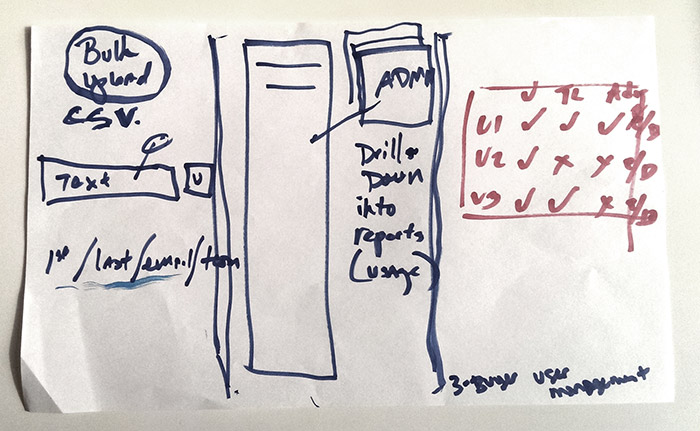 Bulk
Upload
CSV.
Text
U
1st/last/email/team
ADMN
Drill
Down
into
reports
(usage)
✓ TL
U1 ✓ ✓ ✓
U2 ✓ x x
U3 ✓ ✓ x
user
management